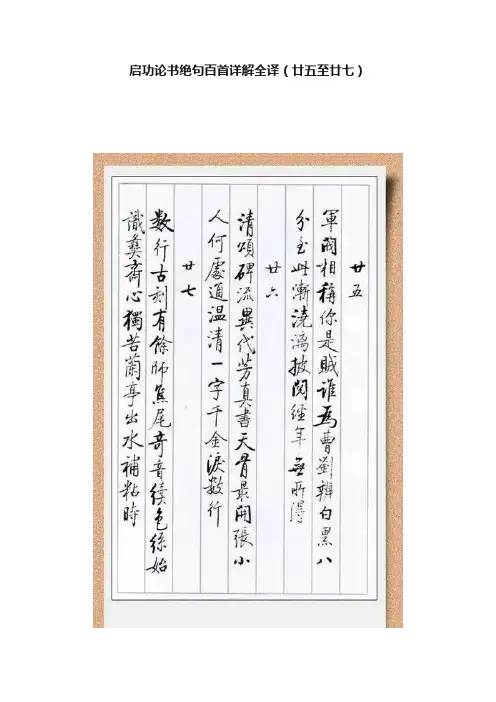 启功论书绝句百首详解全译（廿五至廿七）
廿五
軍閥相稱你是賊誰為曹劉辨白黑八
分至此漸澆漓披閱經年無所得
廿六
清頌碑流異代芳真書天骨最開張小
人何處通温清一字千金淚數行
廿七
數行古刻有餘師焦尾奇音續色絲始
識彝齋心獨苦蘭亭出水補粘時